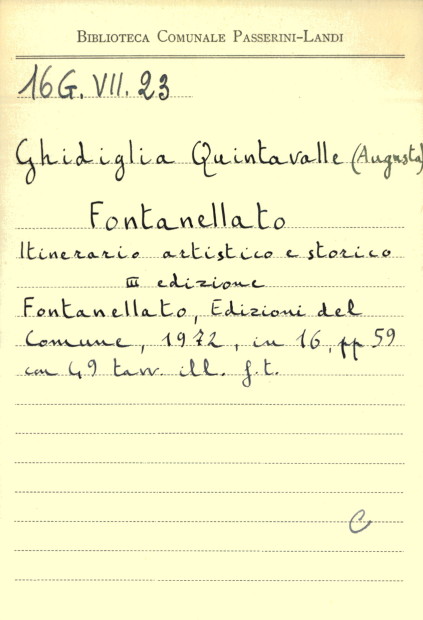 BIBLIOTECA COMUNALE PASSERINI-LANDI
16G. VII. 23
Ghidiglia Quintavalle (Augusta)
Fontanellato
Itinerario artistico e storico
III edizione
Fontanellato, Edizioni del
Comune, 1972, in 16, pp 59
con 49 tavv. ill. f.t.
C